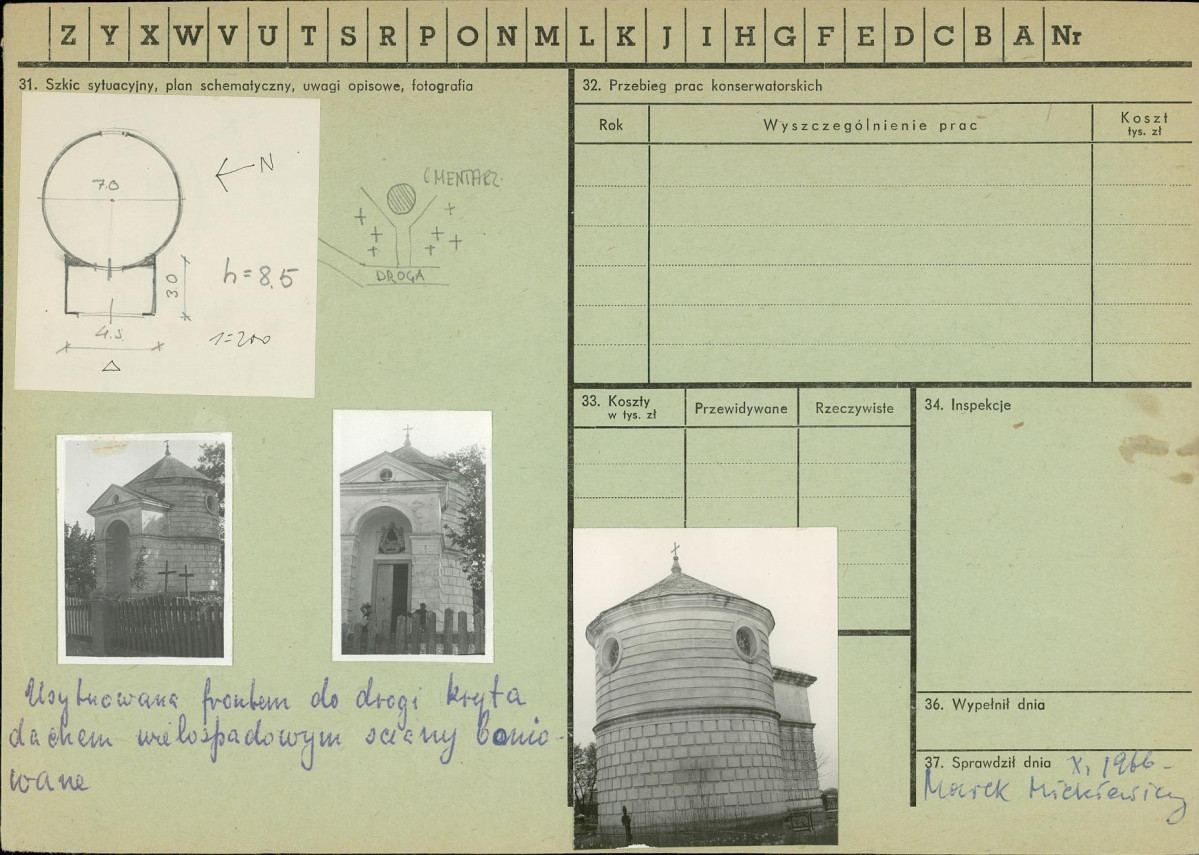 Z Y X W V U T S R P O N M L K J I H G F E D C B A Nr
31. Szkic sytuacyjny, plan schematyczny, uwagi opisowe, fotografia
7.0
N
h=8.5
3.0
4.5
1=200
CMENTARZ
DROGA
Usytuowana frontem do drogi kryta
dachem wielospadowym sciany bonio-
wane
32. Przebieg prac konserwatorskich
Rok Wyszczególnienie prac Koszt
tys. zł
33. Koszty
w tys. zł
Przewidywane Rzeczywiste
34. Inspekcje
36. Wypełnił dnia
37. Sprawdził dnia X. 1966-
Marek Mickiewicz